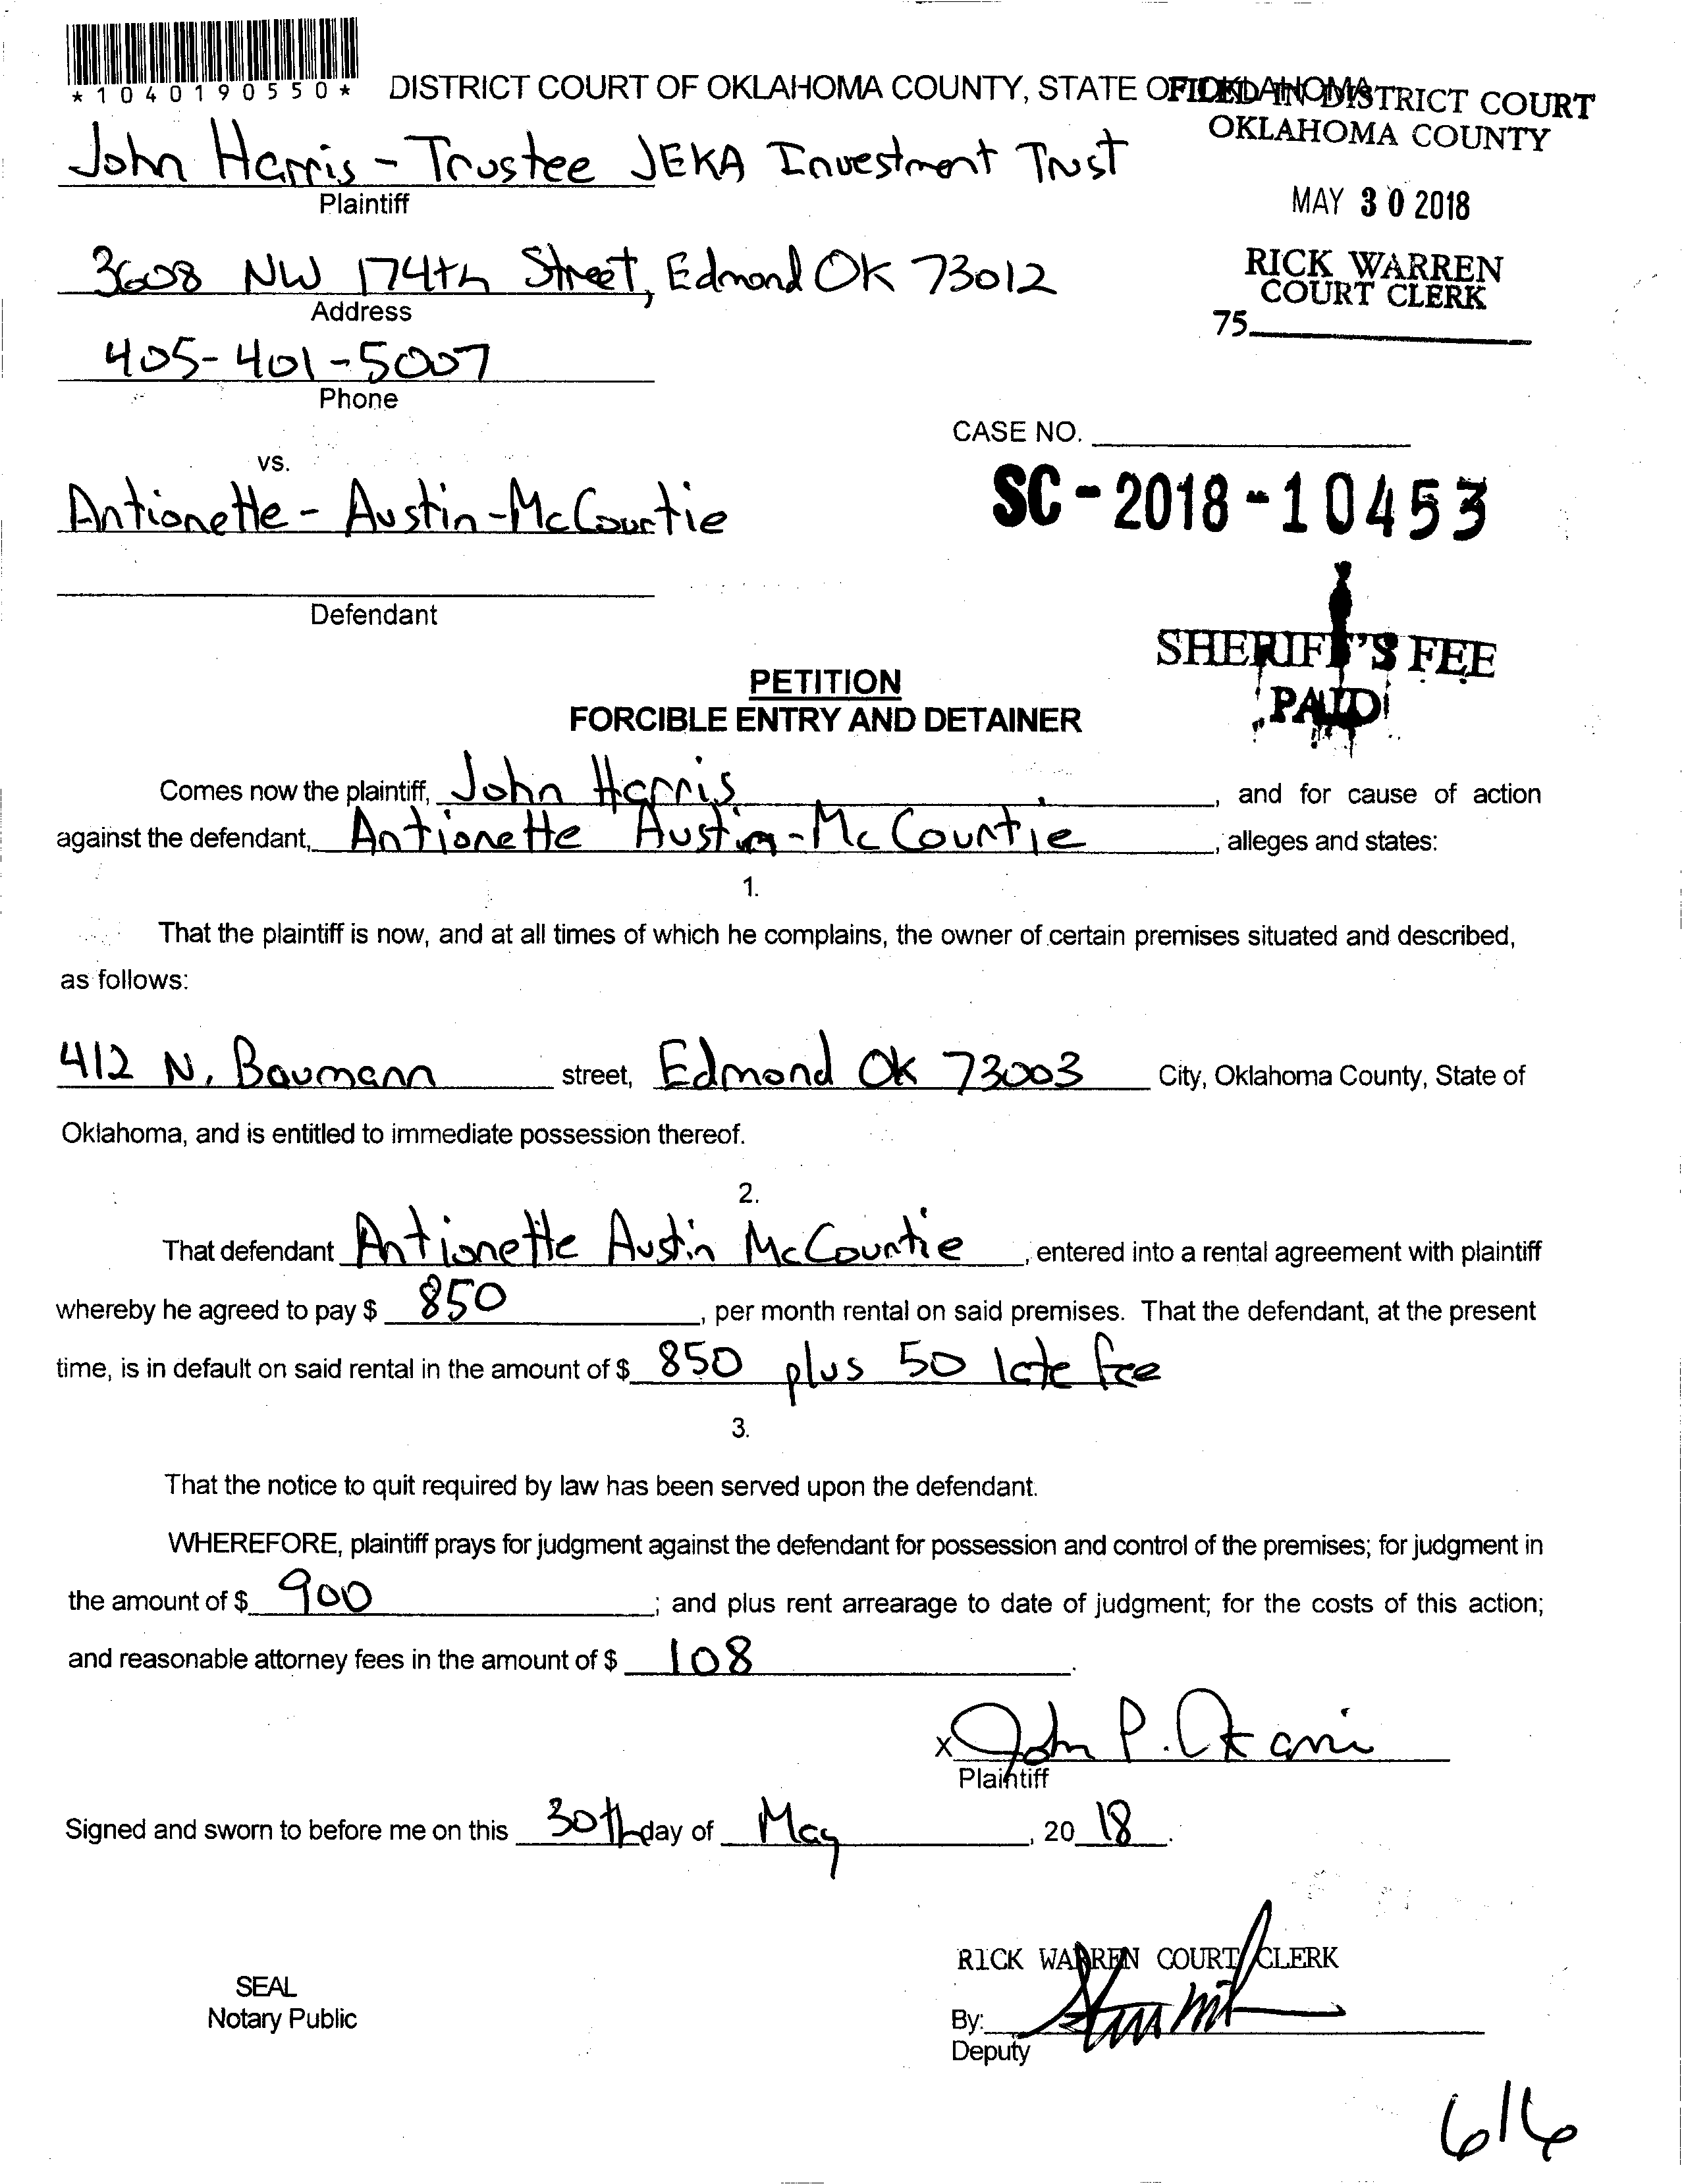 *1040190550*
DISTRICT COURT OF OKLAHOMA COUNTY, STATE OF OKLAHOMA
FILED IN DISTRICT COURT
OKLAHOMA COUNTY
John Harris - Trustee JEKA Investment Trust
Plaintiff
MAY 30 2018
3608 NW 174th Street, Edmond OK 73012
Address
RICK WARREN
COURT CLERK
75
405-401-5007
Phone
CASE NO.
vs.
SC-2018-10453
Antionette - Austin-McCourtie
Defendant
SHERIFF'S FEE
PAID
PETITION
FORCIBLE ENTRY AND DETAINER
Comes now the plaintiff, John Harris, and for cause of action
against the defendant, Antionette Austin-McCourtie, alleges and states:
1.
That the plaintiff is now, and at all times of which he complains, the owner of certain premises situated and described,
as follows:
412 N. Baumann street, Edmond Ok 73003 City, Oklahoma County, State of
Oklahoma, and is entitled to immediate possession thereof.
2.
That defendant Antionette Austin McCourtie, entered into a rental agreement with plaintiff
whereby he agreed to pay $ 850, per month rental on said premises. That the defendant, at the present
time, is in default on said rental in the amount of $ 850 plus 50 late fee
3.
That the notice to quit required by law has been served upon the defendant.
WHEREFORE, plaintiff prays for judgment against the defendant for possession and control of the premises; for judgment in
the amount of $ 900; and plus rent arrearage to date of judgment; for the costs of this action;
and reasonable attorney fees in the amount of $ 108.
X John P. Harris
Plaintiff
Signed and sworn to before me on this 30th day of May, 2018.
RICK WARREN COURT CLERK
SEAL
Notary Public
By:
Deputy
6/6